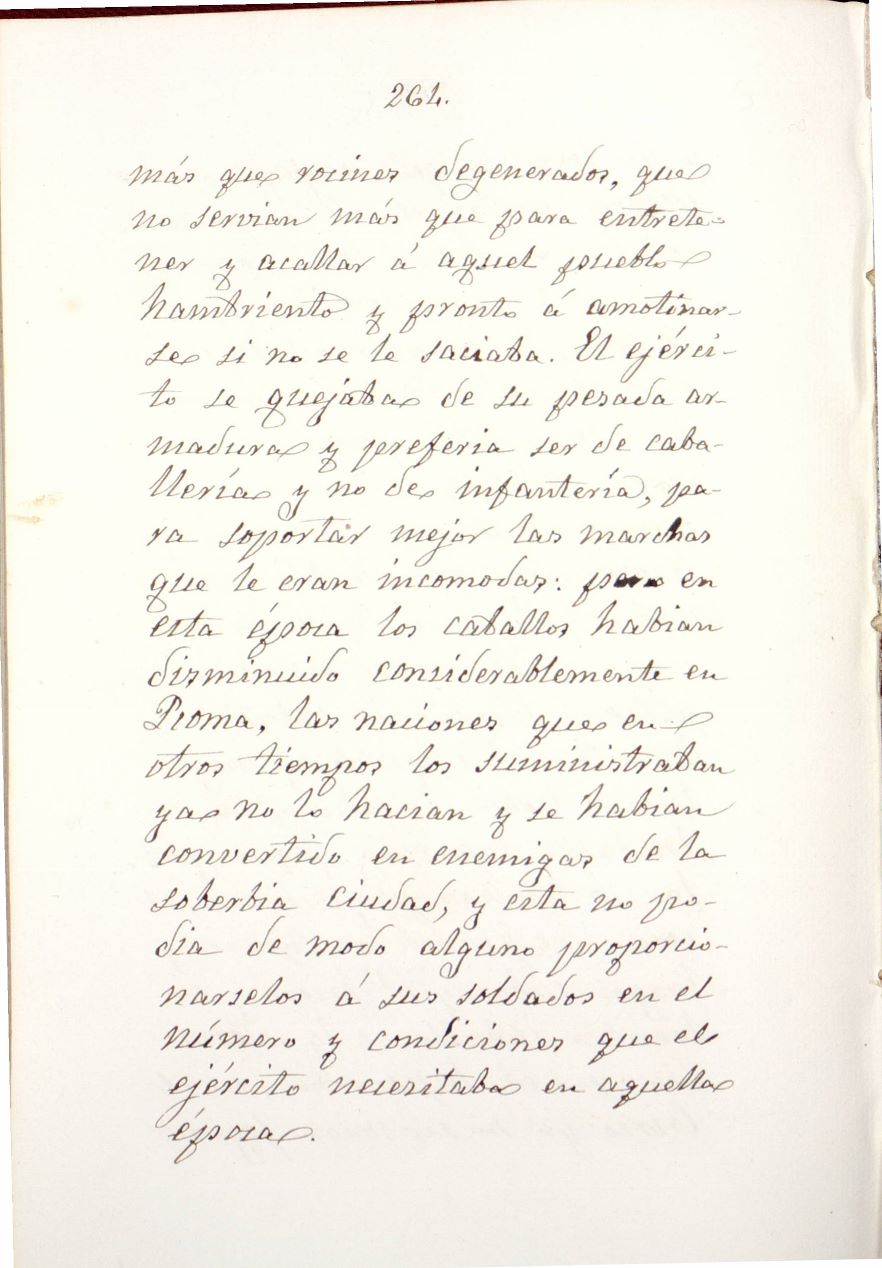 264.
más que rocines degenerados, que
no servian más que para entrete=
ner y acallar á aquel pueblo
hambriento y pronto á amotinar-
se si no se le saciaba. El ejérci-
to se quejaba de su pesada ar-
madura y preferia ser de caba-
llería y no de infantería, pa-
ra soportar mejor las marchas
que le eran incomodas: pero en
esta época los caballos habian
disminuido considerablemente en
Roma, las naciones que en
otros tiempos los suministraban
ya no lo hacian y se habian
convertido en enemigas de la
soberbia Ciudad, y esta no po-
dia de modo alguno proporcio-
narselos á sus soldados en el
número y condiciones que el
ejército necesitaba en aquella
época.